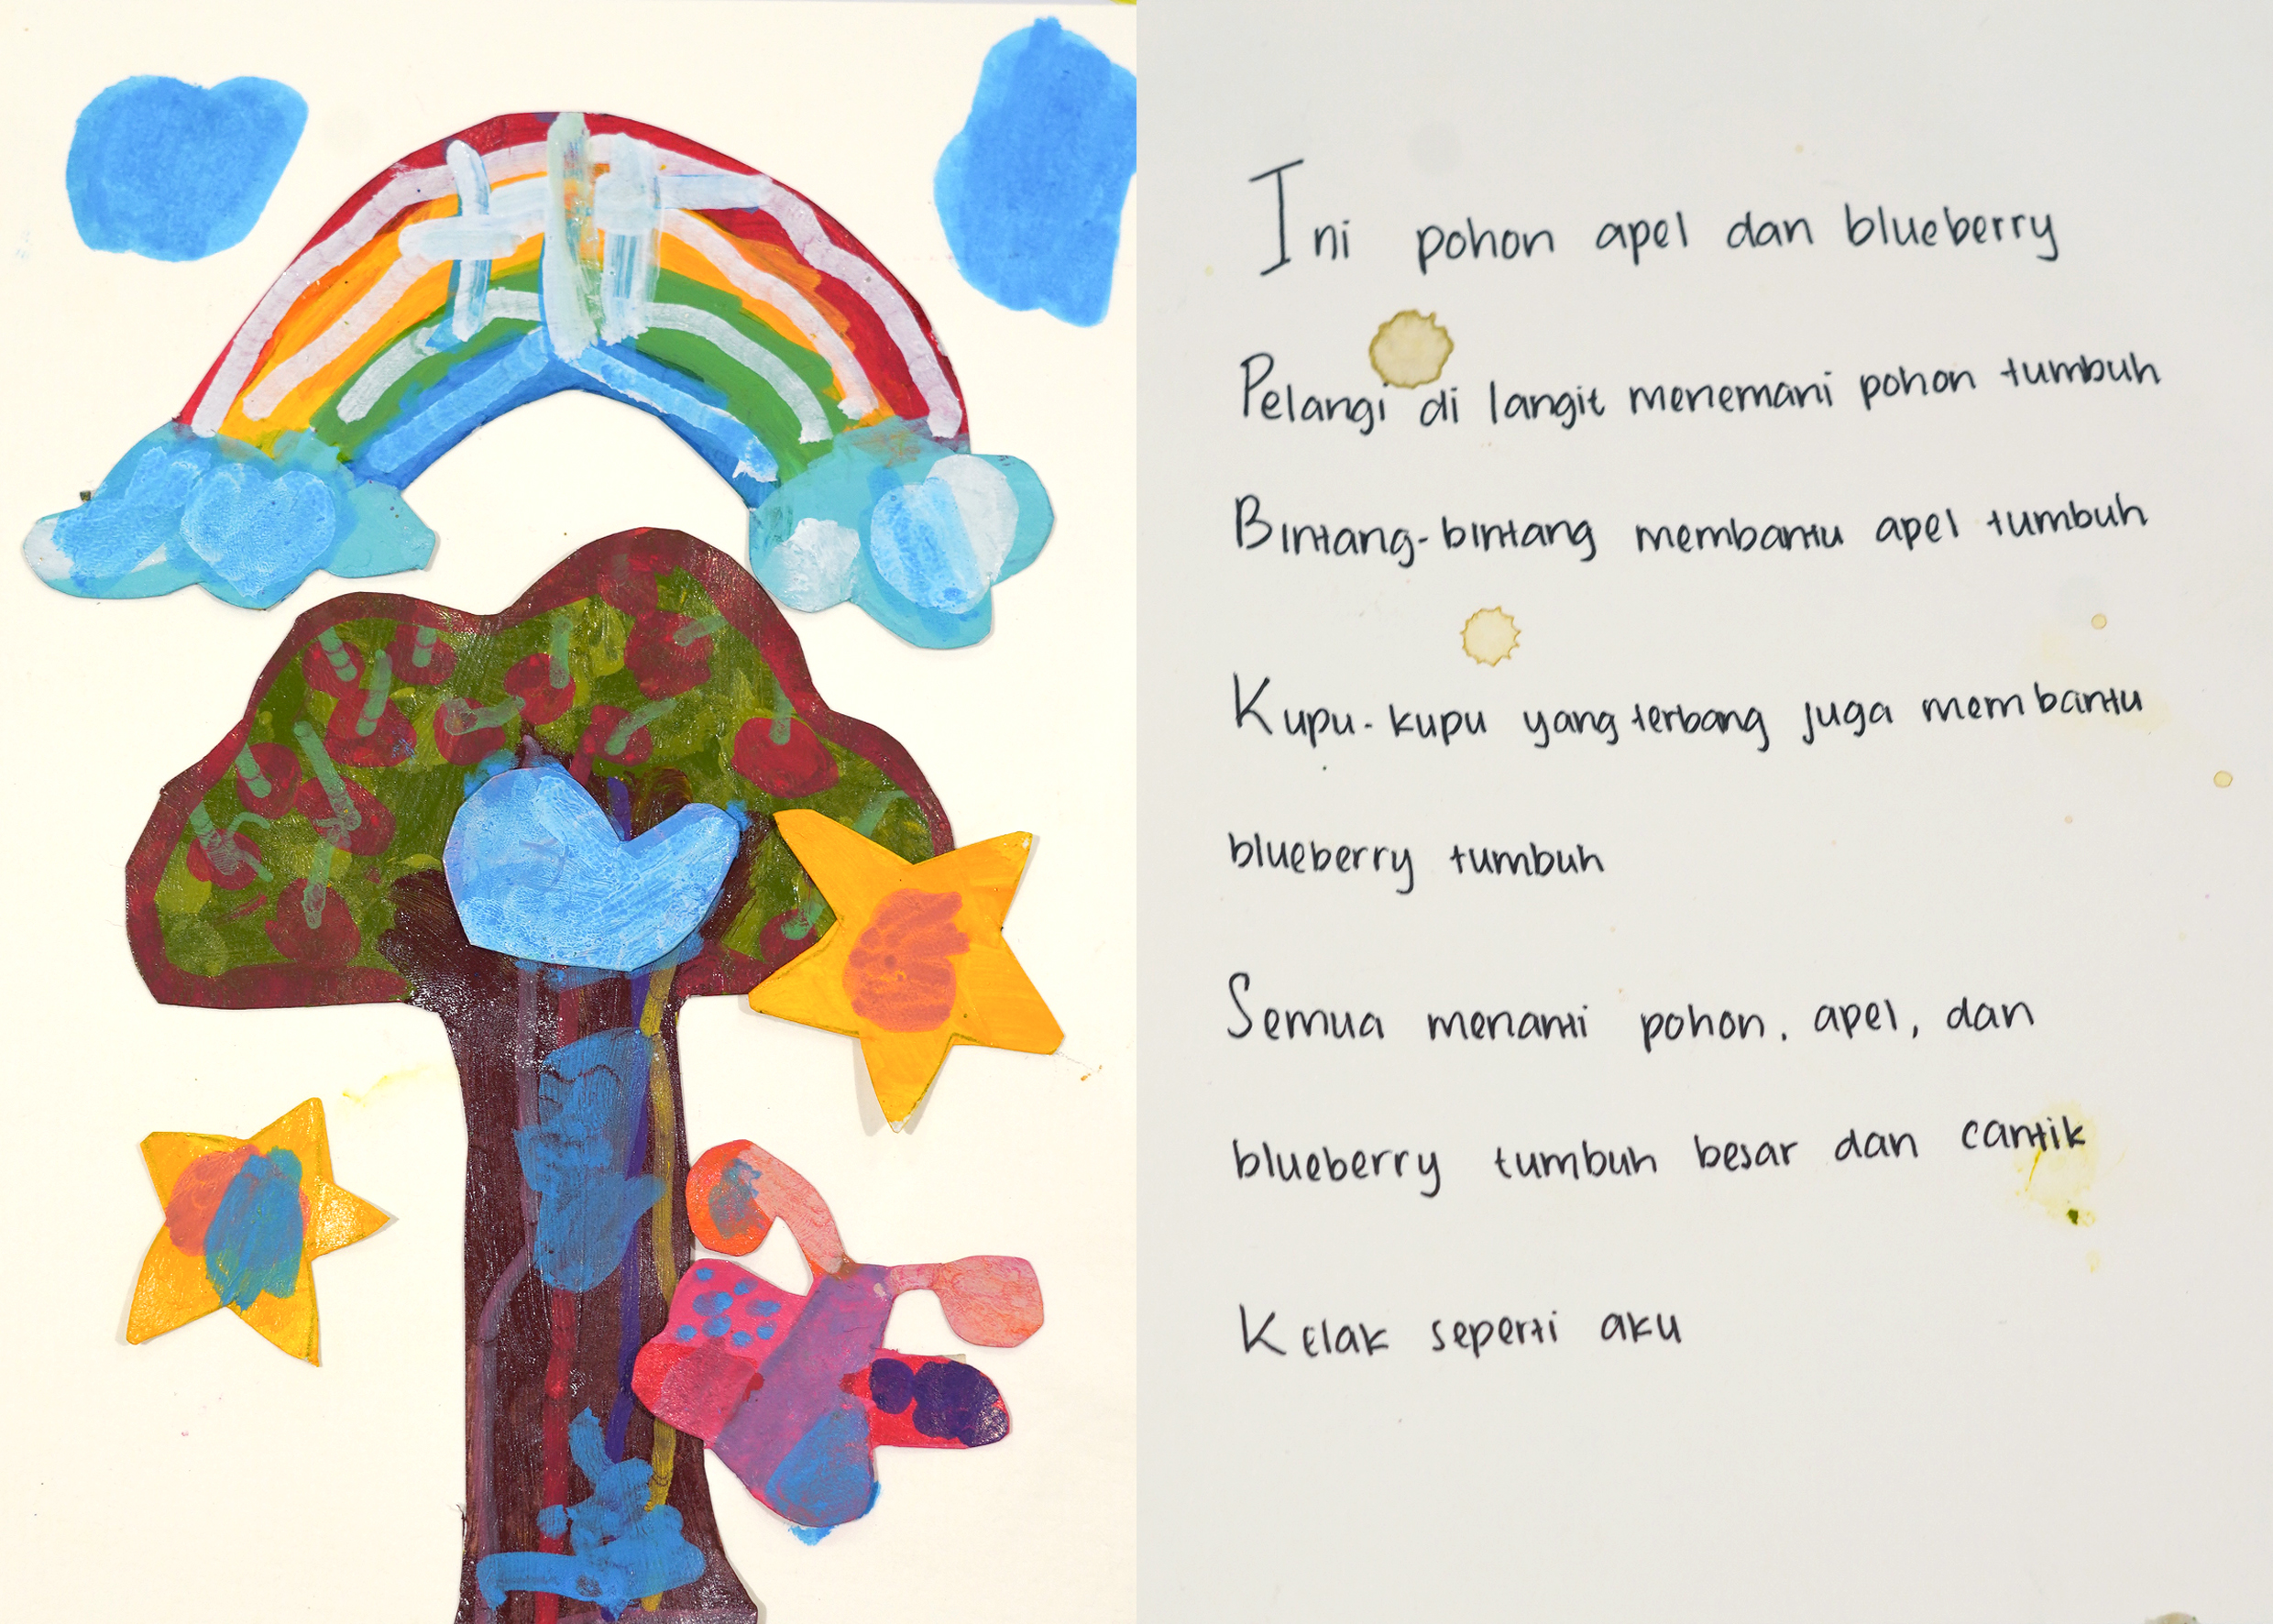 Ini pohon apel dan blueberry
Pelangi di langit menemani pohon tumbuh
Bintang-bintang membantu apel tumbuh
Kupu-kupu yang terbang juga membantu
blueberry tumbuh
Semua menanti pohon, apel, dan
blueberry tumbuh besar dan cantik
Kelak seperti aku